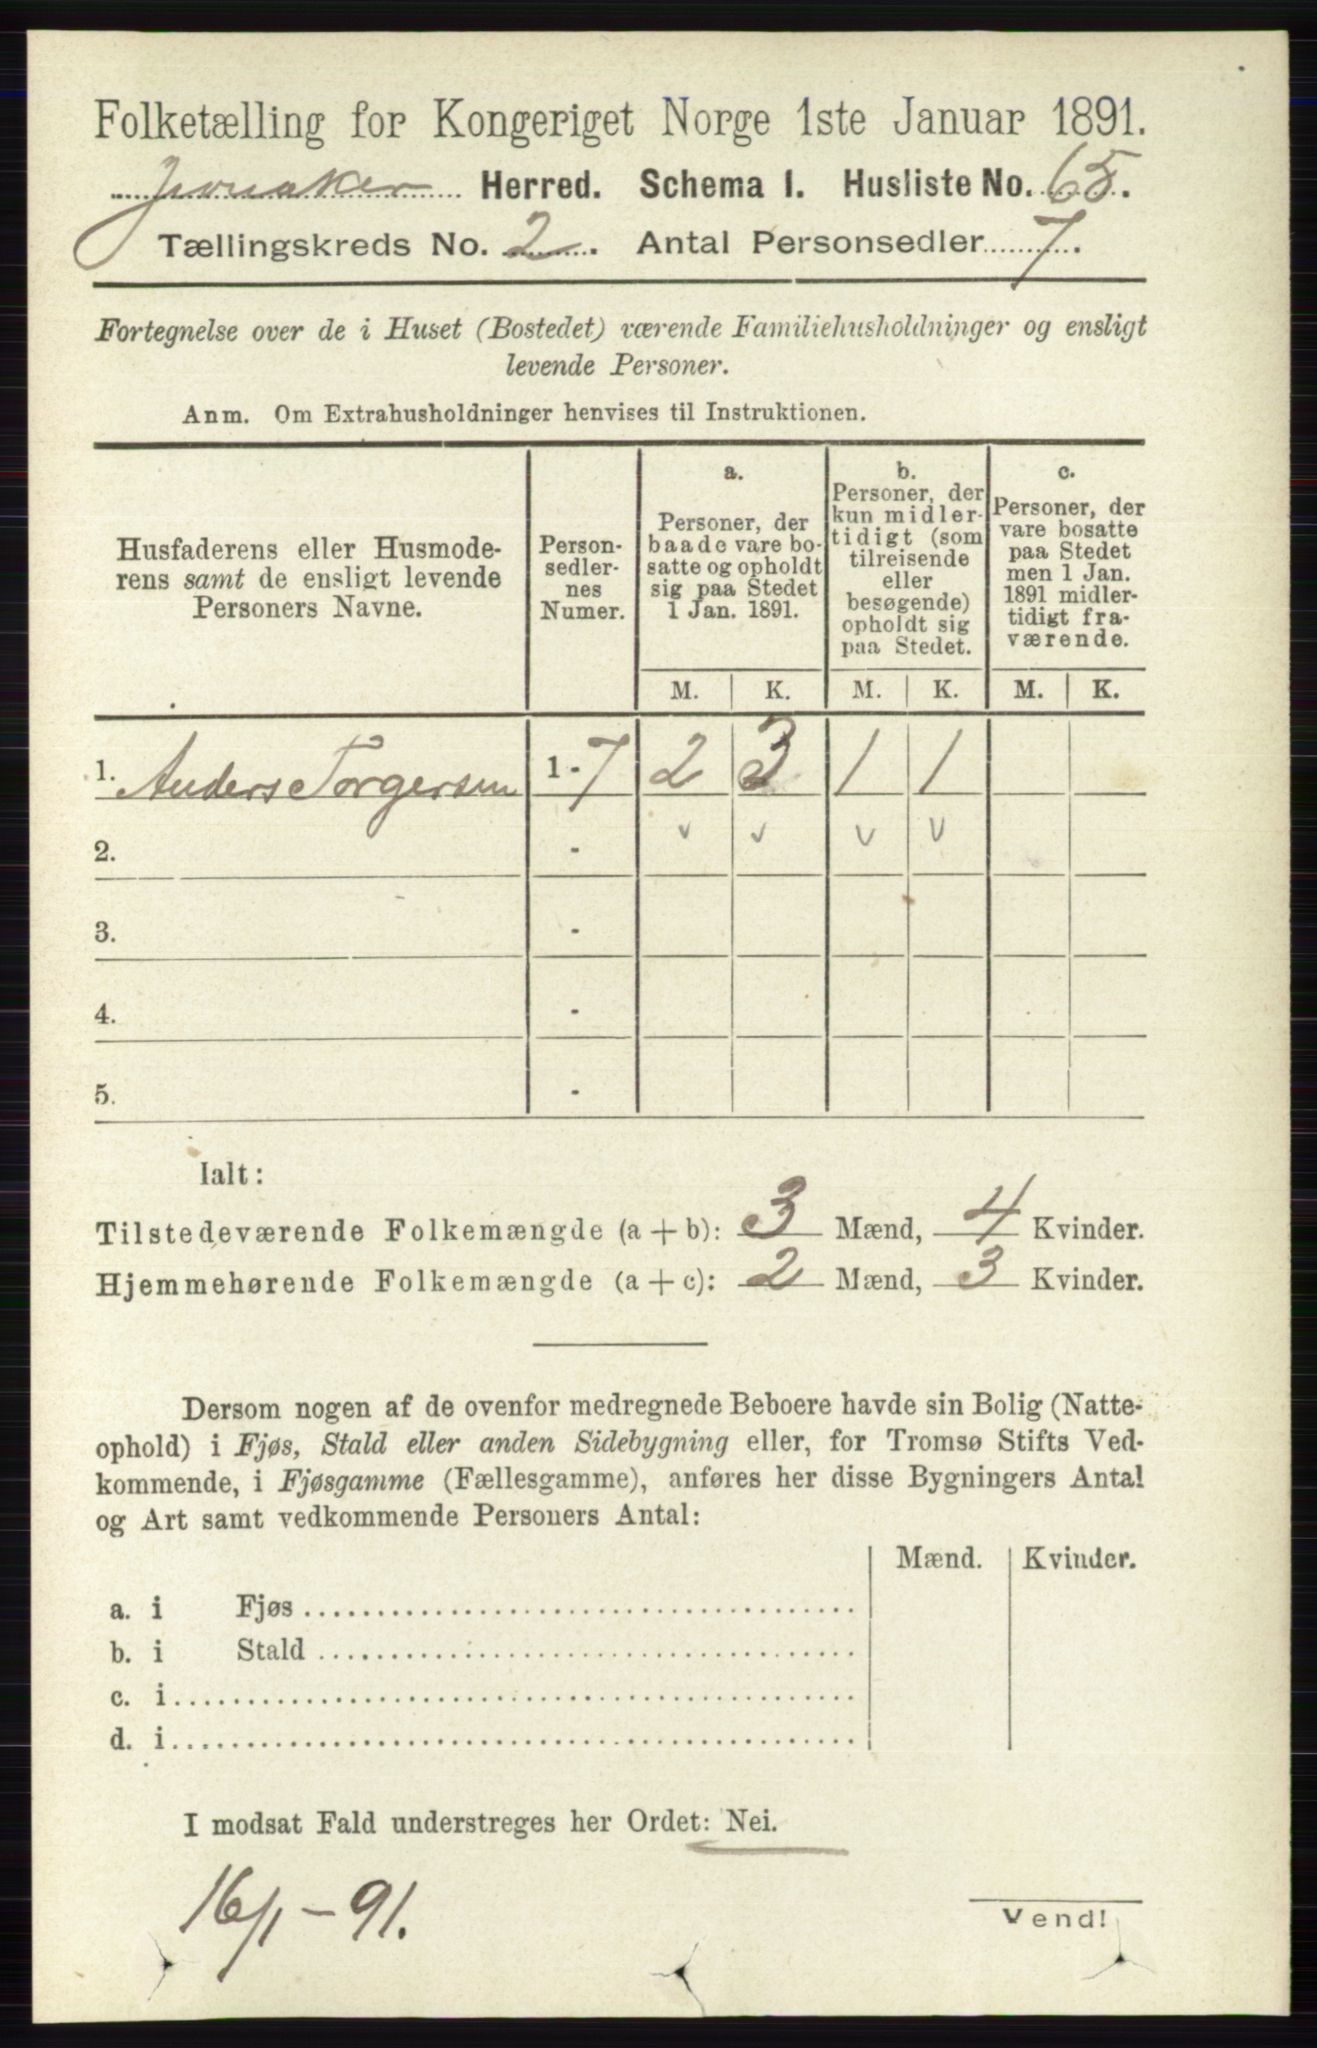 Folketælling for Kongeriget Norge 1ste Januar 1891.
Jevnaker Herred. Schema I. Husliste No. 65.
Tællingskreds No. 2. Antal Personsedler 7.
Fortegnelse over de i Huset (Bostedet) værende Familiehusholdninger og ensligt
levende Personer.
Anm. Om Extrahusholdninger henvises til Instruktionen.
Husfaderens eller Husmode-
rens samt de ensligt levende
Personers Navne.
Person-
sedler-
nes
Numer.
a.
Personer, der
baade vare bo-
satte og opholdt
sig paa Stedet
1 Jan. 1891.
b.
Personer, der
kun midler-
tidigt (som
tilreisende
eller
besøgende)
opholdt sig
paa Stedet.
c.
Personer, der
vare bosatte
paa Stedet
men 1 Jan.
1891 midler-
tidigt fra-
værende.
M. K. M. K. M. K.
1. Anders Torgersen 1 - 7 2 3 1 1
2. - v v v v
3. -
4. -
5. -
Ialt:
Tilstedeværende Folkemængde (a + b): 3 Mænd, 4 Kvinder.
Hjemmehørende Folkemængde (a + c): 2 Mænd, 3 Kvinder.
Dersom nogen af de ovenfor medregnede Beboere havde sin Bolig (Natte-
ophold) i Fjøs, Stald eller anden Sidebygning eller, for Tromsø Stifts Ved-
kommende, i Fjøsgamme (Fællesgamme), anføres her disse Bygningers Antal
og Art samt vedkommende Personers Antal:
Mænd. Kvinder.
a. i Fjøs
b. i Stald
c. i
d. i
I modsat Fald understreges her Ordet: Nei.
16/1 - 91.
Vend!